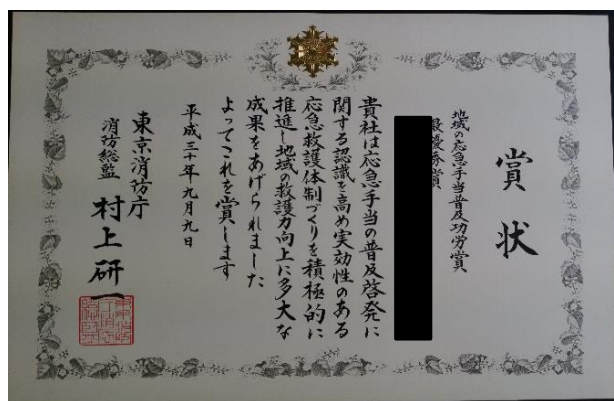 賞状
地域の応急手当普及功労賞
最優秀賞
貴社は応急手当の普及啓発に
関する認識を高め実効性のある
応急救護体制づくりを積極的に
推進し地域の救護力向上に多大な
成果をあげられました
よってこれを賞します
平成三十年九月九日
東京消防庁
消防総監 村上研一